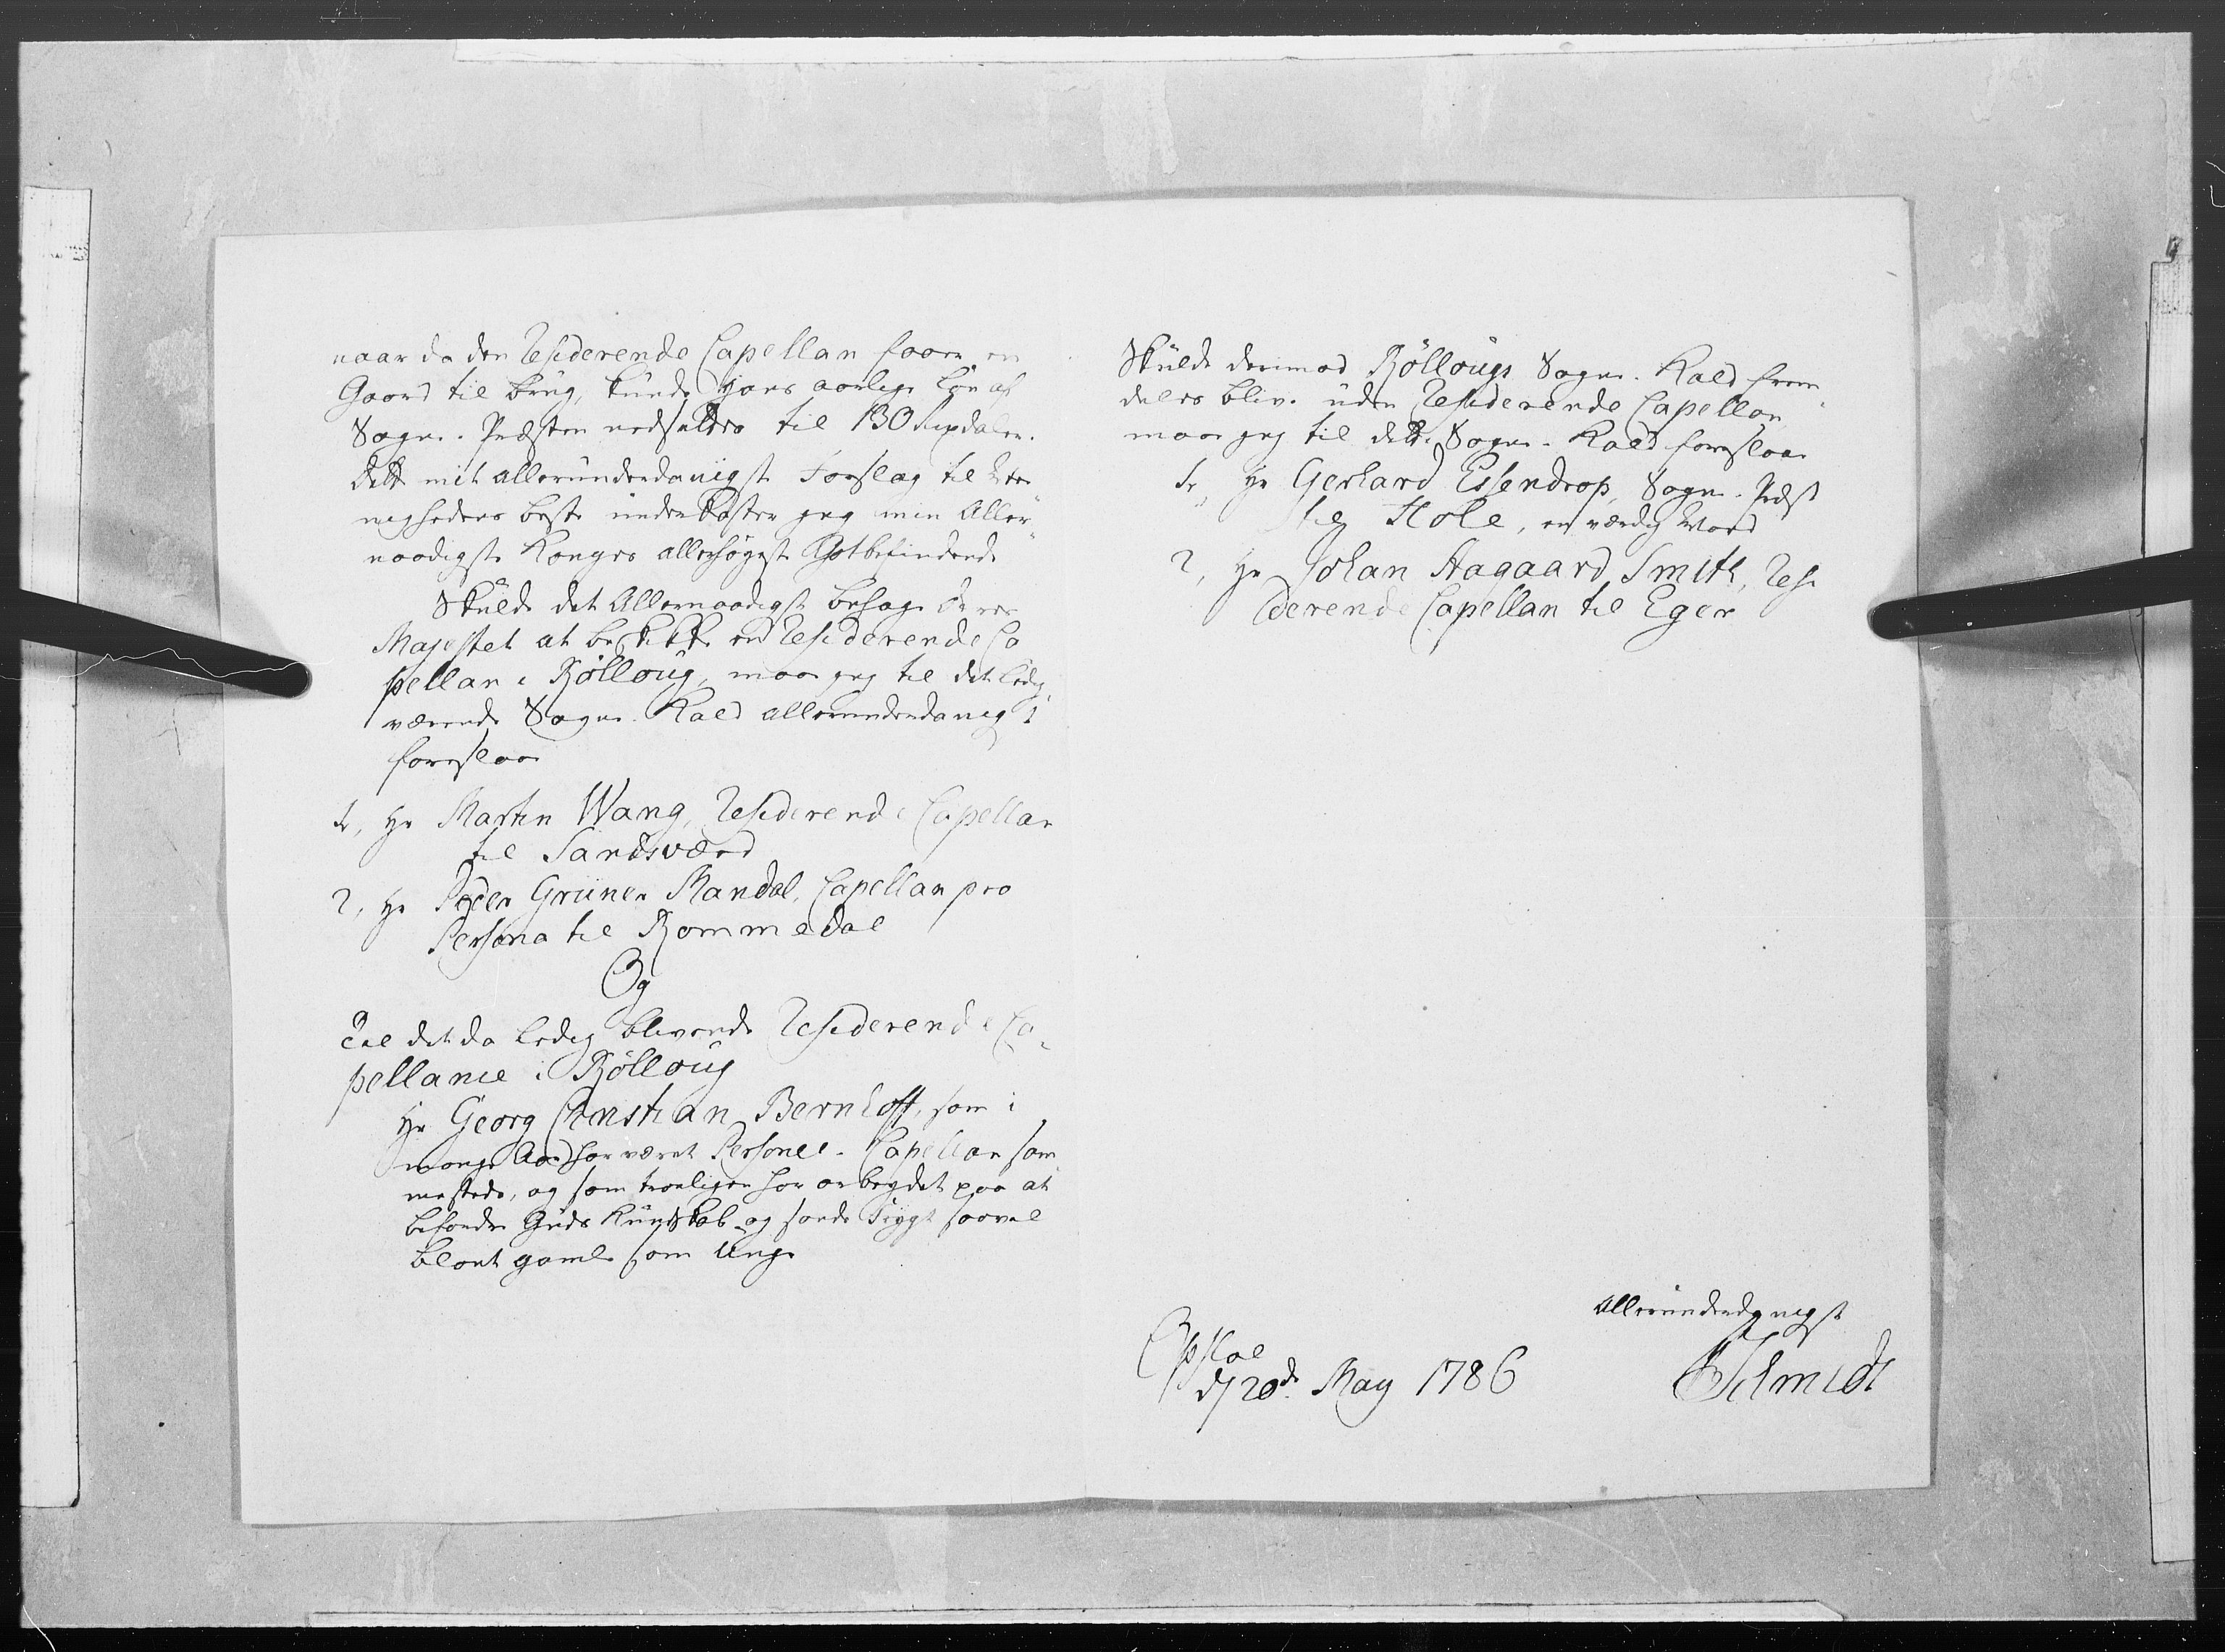 naar da den Residerende Capellan faaer en
Gaard til brug, kunde hans aarlige Løn af
Sogne-Præsten nedsættes til 130 Rixdaler.
Dette mit allerunderdanigste Forslag til Me-
nighedens beste underkaster jeg min Aller-
naadigste Konges allerhøyeste Gotbefindende
Skulde det Allernaadigst behage Deres
Majestet at beskikke en Residerende Ca
pellan i Rolloug, maae jeg til det ledig
værende Sogne-Kald allerunderdanigst
foreslaae
1, Hr Martin Wang, Residerende Capellan
til Sandsværd
2, Hr Peder Grüner Mandal, Capellan pro
Persona til Rommedal
Og
Til det da ledig blivende Residerende Ca-
pellanie i Rolloug
Hr Georg Christian Bernhoft, som i
mange Aar har været Personel-Capellan sam-
mesteds, og som troeligen har arbeydet paa at
befordre Guds Kundskab og sande Frygt saavel
blant gamle som Unge
Skulde derimod Rollougs Sogne-Kald frem-
deles blive uden Residerende Capellan
maae jeg til dette Sogne-Kald foreslaae
1, Hr Gerhard Essendrop, Sogne-Præst
til Hole, en værdig Mand
2, Hr Johan Aagaard Smith, Resi
derende Capellan til Eger
Opsloe
d 20de May 1786
allerunderdanigst
Schmidt